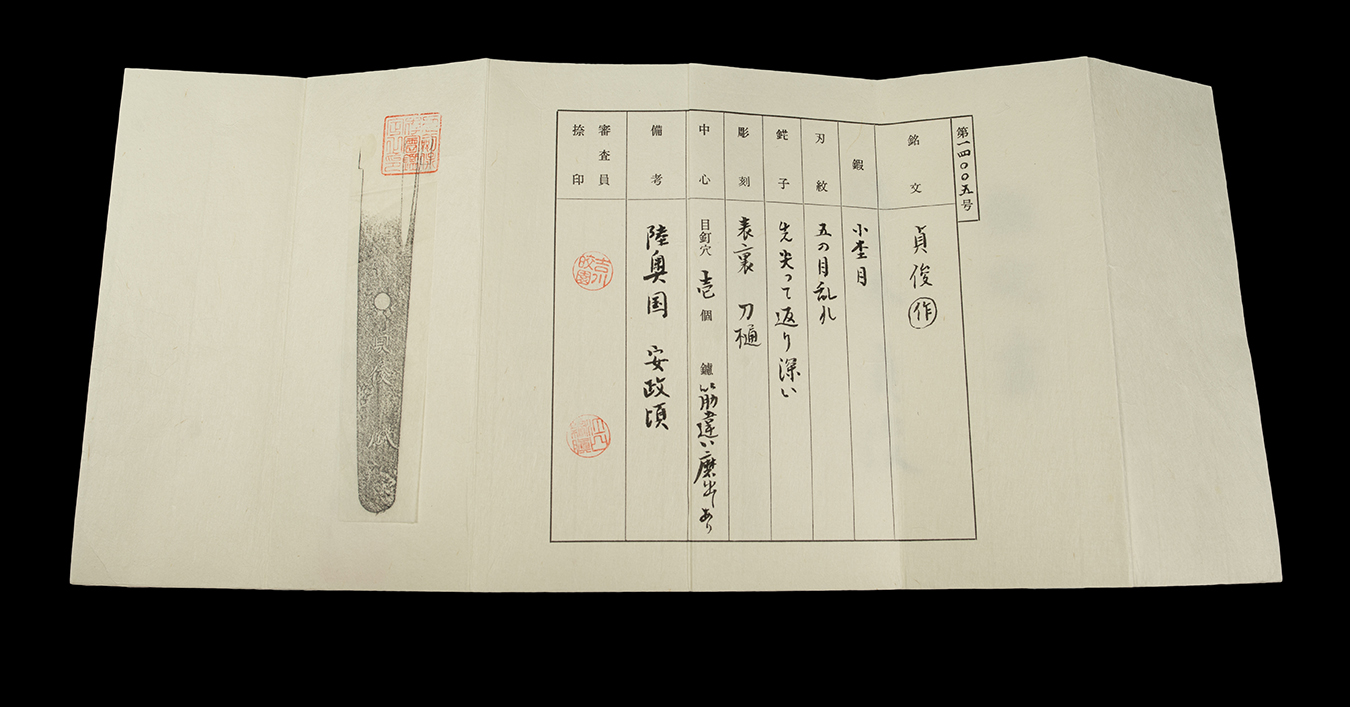 第一四〇〇五号
銘文
貞俊 作
鍛
小杢目
刃紋
五の目乱れ
鋩子
先尖って返り深い
彫刻
表裏 刀樋
中心
目釘穴 壱 個 鑢 筋違い磨出あり
備考
陸奥国 安政頃
審査員
捺印
貞俊作